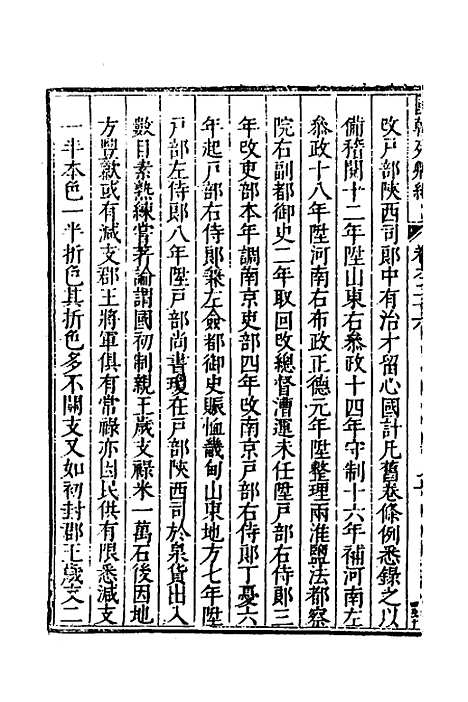 改戶部陝西司郎中有治才留心國計凡舊卷條例悉錄之以
備稽閱十二年陞山東右叅政十四年守制十六年補河南左
叅政十八年陞河南右布政正德元年陞整理兩淮鹽法都察
院右副都御史二年取回改總督漕運未任陞戶部右侍郎三
年改吏部本年調南京吏部四年改南京戶部右侍郎丁憂六
年起戶部右侍郎兼左僉都御史賑恤畿甸山東地方七年陞
戶部左侍郎八年陞戶部尚書瓊在戶部陝西司於泉貨出入
數目素熟練嘗著論謂國初制親王歲支祿米一萬石後因地
方豐歉或有減支郡王將軍俱有常祿亦因民供有限悉減支
一半本色一半折色其折色多不關支又如初封郡王歲支二